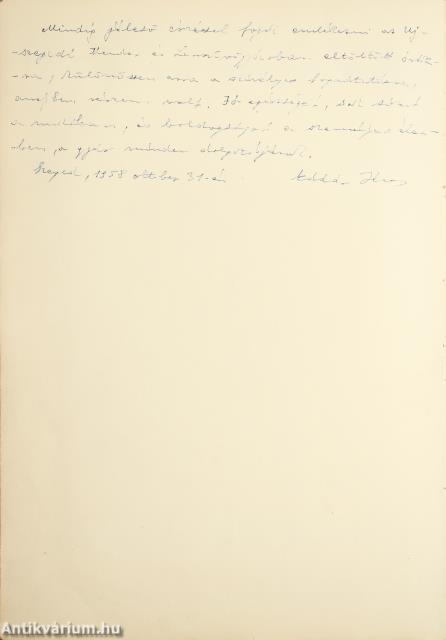 Mindig jóleső érzéssel fogok emlékezni az Uj-
szegedi Kender és Lenszövőgyárban eltöltött órák-
ra, különösen arra a szívélyes fogadtatásra,
amelyben részem volt. Jó egészséget, sok sikert
a munkában, és boldogságot a személyes élet-
ben, a gyár minden dolgozójának.
Szeged, 1958 október 31-én
Antikvárium.hu